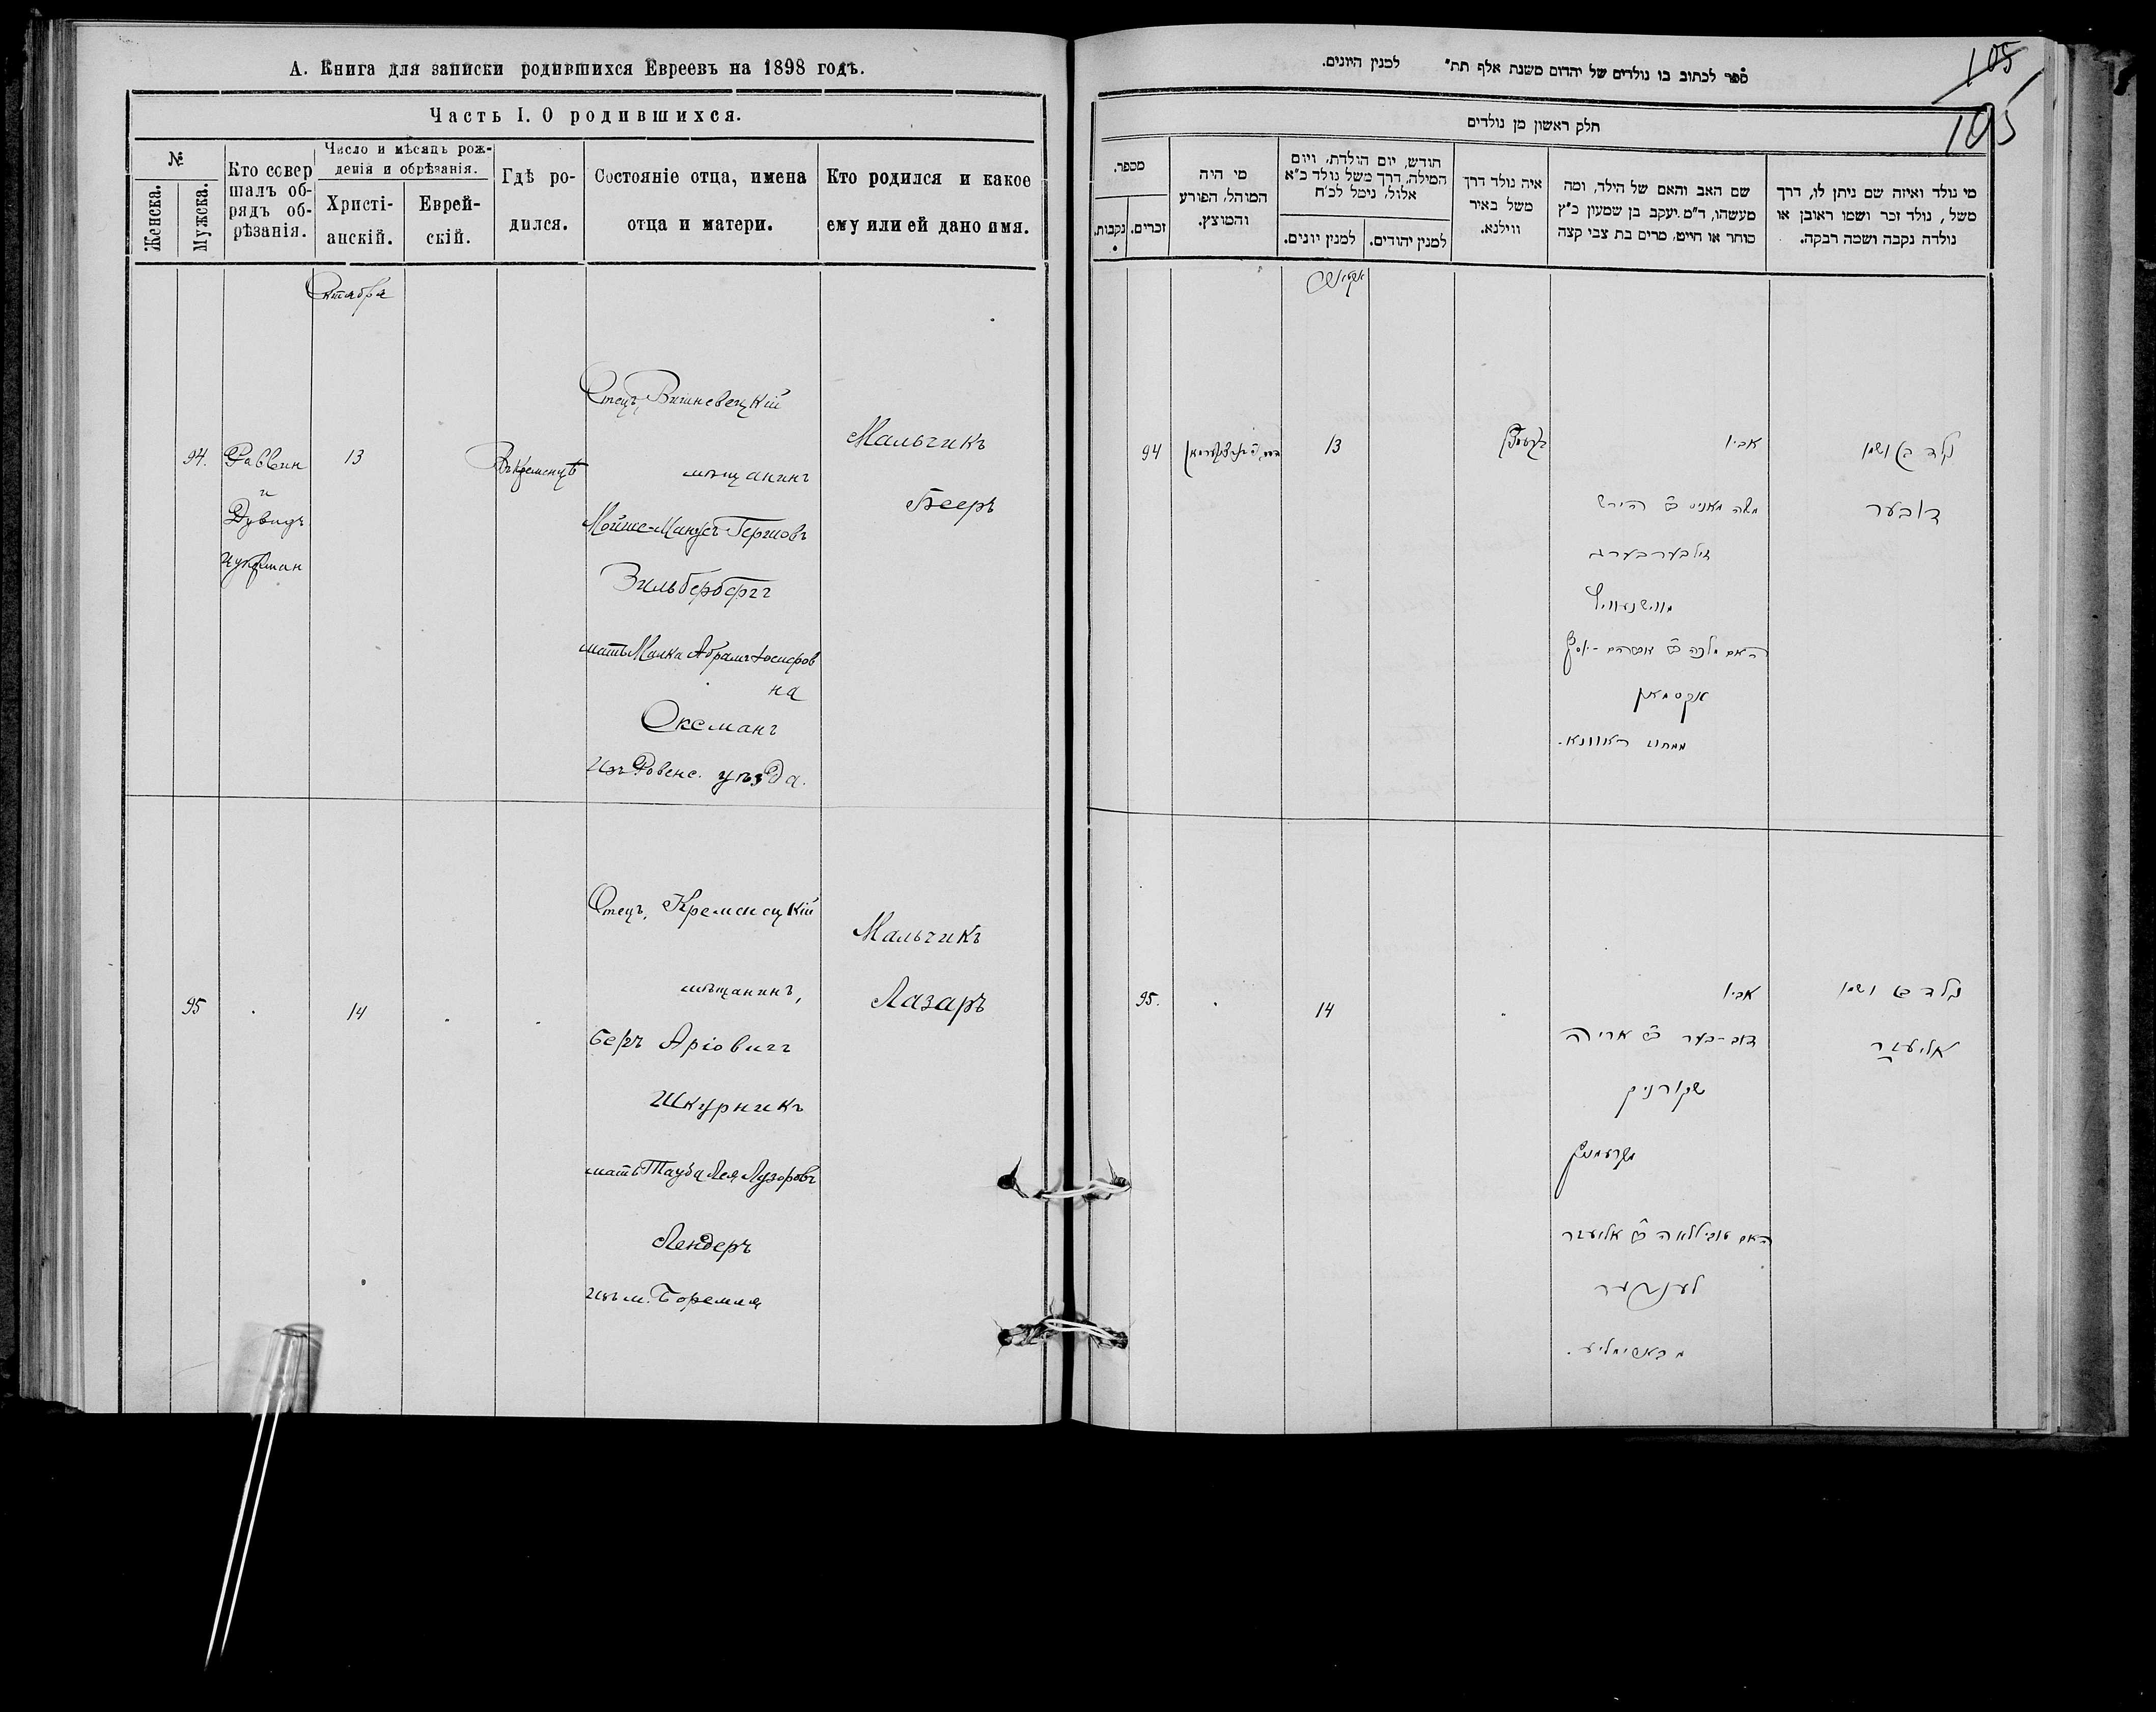 А. Книга для записки родившихся Евреевъ на 1898 годъ.
Часть I. О родившихся.
№
Женска.
Мужска.
Кто совер
шалъ об-
рядъ об-
рѣзанія.
Число и мѣсяцъ рож-
денія и обрѣзанія.
Христі-
анскій.
Еврей-
скій.
Гдѣ ро-
дился.
Состояніе отца, имена
отца и матери.
Кто родился и какое
ему или ей дано имя.
Октабра
94.
Раввин
и
Дувидъ
Цукрман
13
Въ Кременцѣ
Отецъ, Вишневецкій
мѣщанинъ
Мойше-Манусъ Гершовъ
Зильбербергъ
мать Малка Абрамъ Іосифов
на
Оксманъ
Изъ Ровенс. уѣзда.
Мальчикъ
Бееръ
95
14
Отецъ, Кременецкій
мѣщанинъ,
Беръ Аріовичъ
Шкурникъ
мать Тауба Лея Лузоровъ
Лендеръ
изъ м. Боремля
Мальчикъ
Лазаръ
ספר לכתוב בו נולדים של יהדום משנת אלף תת״ למנין היונים.
105
105
חלק ראשון מן נולדים
מספר.
נקבות.
זכרים.
מי היה
המוהל, הפורע
והמוצץ.
חודש, יום הולדת, ויום
המילה, דרך משל נולד כ״א
אלול, נימל לכ״ח
למנין יונים.
למנין יהודים.
איה נולד דרך
משל באיר
ווילנא.
שם האב והאם של הילד, ומה
מעשהו, ד״מ יעקב בן שמעון כ״ץ
סוחר או חייט, מרים בת צבי קצה
מי נולד ואיזה שם ניתן לו, דרך
משל, נולד זכר ושמו ראובן או
נולדה נקבה ושמה רבקה.
94
13
אביו
משה מאניס ב״ר הירש
זילבערבערג
האם מלכה ב״ר אברהם-יוסף
אקסמאן
ממחוז ראוונא.
נולד בן ושמו
דובער
95.
14
אביו
דוב-בער ב״ר אריה
שקורניק
מקרעמניץ
לענדער
נולד בן ושמו
אליעזר